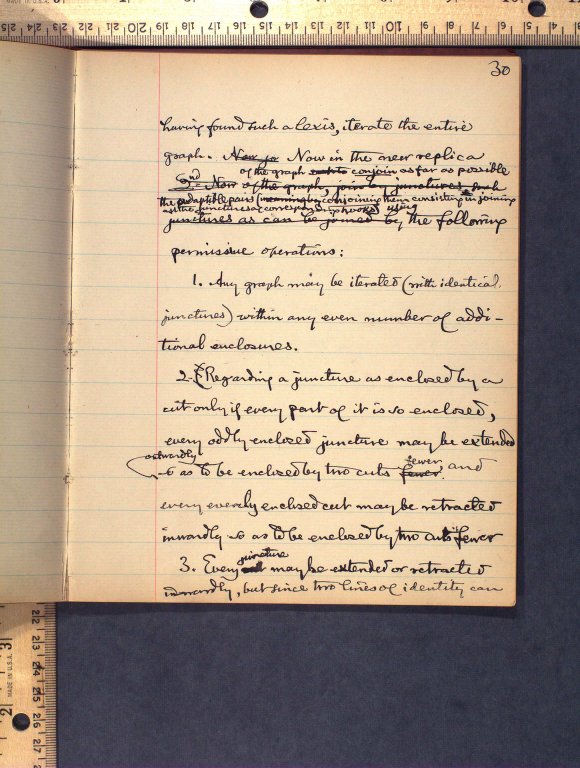 30
having found such a lexis, iterate the entire
graph. Now jo Now in the new replica
of the graph conjoin as far as possible
2nd Now of the graph, join by junctures such
the adaptible pairs (meaning by conjoining them consisting in joining
all the junctures as hooks) using
junctures as can be joined by the following
permissive operations:
1. Any graph may be iterated (with identical
junctures) within any even number of addi-
tional enclosures.
2. Regarding a juncture as enclosed by a
cut only if every part of it is so enclosed,
every oddly enclosed juncture may be extended
outwardly
so as to be enclosed by two cuts fewer fewer and
every evenly enclosed cut may be retracted
inwardly so as to be enclosed by two cuts fewer
juncture
3. Every may be extended or retracted
inwardly, but since two lines of identity can
MADE IN U.S.A.